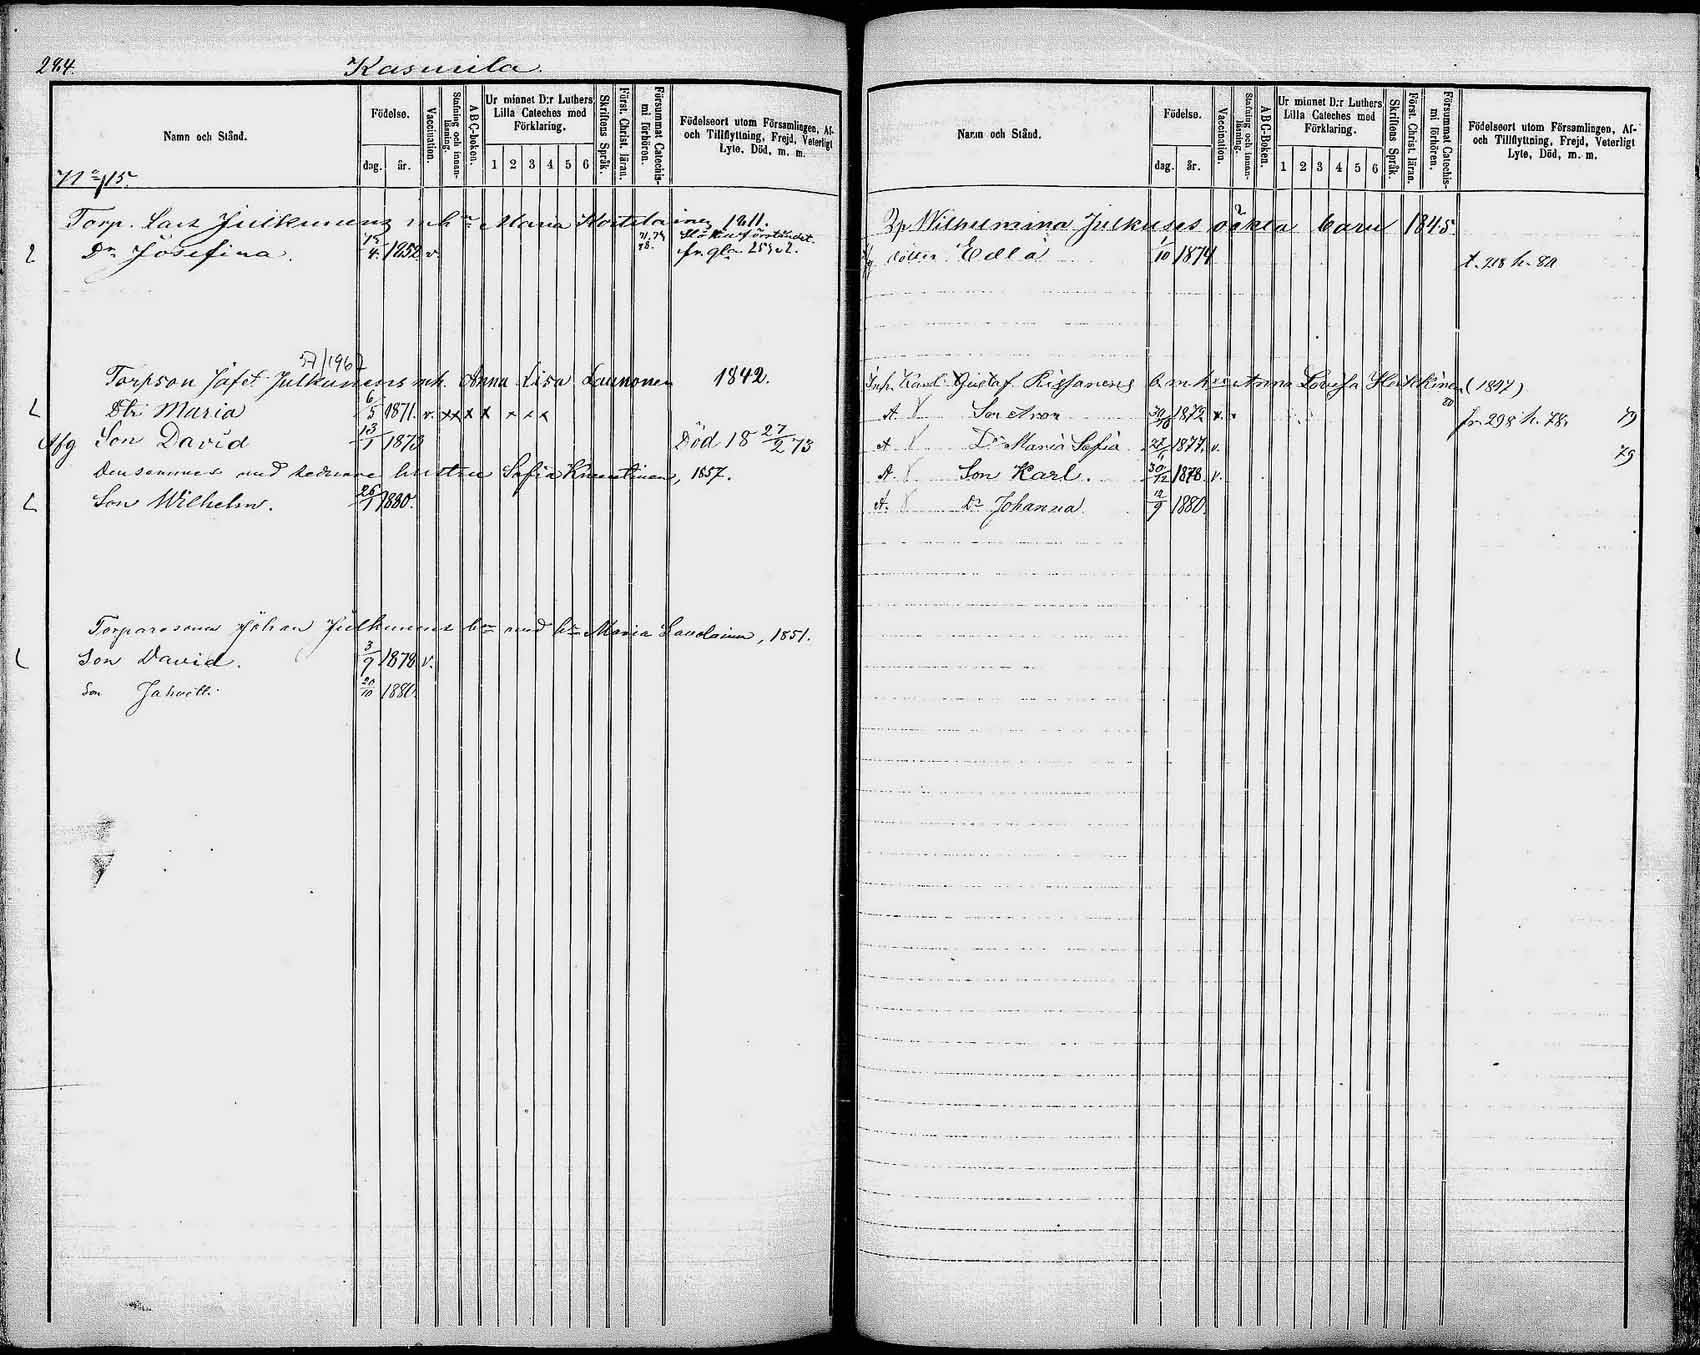 284.
Kasurila.
Namn och Stånd.
Födelse.
dag.
år.
Vaccination.
Stafning och innan-läsning.
ABC-boken.
Ur minnet D:r Luthers Lilla Cateches med Förklaring.
1 2 3 4 5 6
Skriftens Språk.
Först. Christ. läran.
Försummat Catechis-mi förhören.
Födelseort utom Församlingen, Af- och Tillflyttning, Frejd, Veterligt Lyte, Död, m. m.
N:o 15.
Torp. Lars Julkunens m h:u Maria 1811.
D:r Josefina. 4. 1852 v. 78. fr. gla 259 v 2.
57/1967
Torpson Jafet Julkunens m h. Anna Lisa Launonen 1842.
Dtr Maria 6/5 1871. v. x x x x x x x
Afg Son David 13/1 1873 Död 18 27/2 73
Densammes med hustru Sofia 1857.
Son Wilhelm. 26/1 1880.
Torparesonen Johan Julkunens b:n med h:u Maria Savolainen, 1851.
Son David. 3/9 1878 v.
Son 20/10 1880.
Namn och Stånd.
Födelse.
dag.
år.
Vaccination.
Stafning och innan-läsning.
ABC-boken.
Ur minnet D:r Luthers Lilla Cateches med Förklaring.
1 2 3 4 5 6
Skriftens Språk.
Först. Christ. läran.
Försummat Catechis-mi förhören.
Födelseort utom Församlingen, Af- och Tillflyttning, Frejd, Veterligt Lyte, Död, m. m.
Wilhelmina Julkuses oäkta barn 1845.
Edla 1/10 1874 t. 218 h. 80
Inh. Karl Gustaf Rissanens b. m h:u Anna Lovisa Heikkinen (1847)
80
A. Son Aron 30/10 1872 v. fr. 298 h. 78. 79
A. D:r Maria Sofia 1877. v. 79
A. Son Karl. 30/12 1878. v.
A. D:r Johanna 12/9 1880.